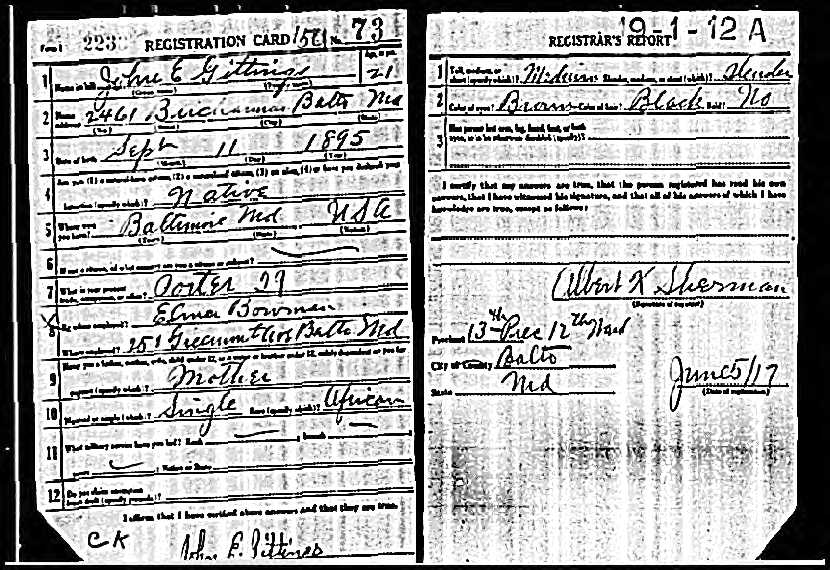 Form 1 223 REGISTRATION CARD 1571 No. 73
1 Name in full John E Gittings Age, in yrs. 21
(Given name) (Family name)
2 Home address 2461 Buchannan Balto Md
(No.) (Street) (City) (State)
3 Date of birth Sept 11 1895
(Month) (Day) (Year)
Are you (1) a natural-born citizen, (2) a naturalized citizen, (3) an alien, (4) or have you declared your
4 intention (specify which)? Native
5 Where were you born? Baltimore Md USA
(Town) (State) (Nation)
6 If not a citizen, of what country are you a citizen or subject?
7 What is your present trade, occupation, or office? Porter 29
X 8 By whom employed? Elmer Bowman
Where employed? 251 Greenmount Ave Balto Md
Have you a father, mother, wife, child under 12, or a sister or brother under 12, solely dependent on you for
9 support (specify which)? Mother
10 Married or single (which)? Single Race (specify which)? African
11 What military service have you had? Rank ; branch
years ; Nation or State
12 Do you claim exemption from draft (specify grounds)?
I affirm that I have verified above answers and that they are true
CK John E. Gittings
19-1-12 A
REGISTRAR'S REPORT
1 Tall, medium, or short (specify which)? Medium Slender, medium, or stout (which)? Slender
2 Color of eyes? Brown Color of hair? Black Bald? No
3 Has person lost arm, leg, hand, foot, or both eyes, or is he otherwise disabled (specify)?
I certify that my answers are true, that the person registered has read his own
answers, that I have witnessed his signature, and that all of his answers of which I have
knowledge are true, except as follows:
Albert K Sherman
(Signature of registrar)
Precinct 13th Prec 12th Ward
City or County Balto
State Md
June 5/17
(Date of registration)